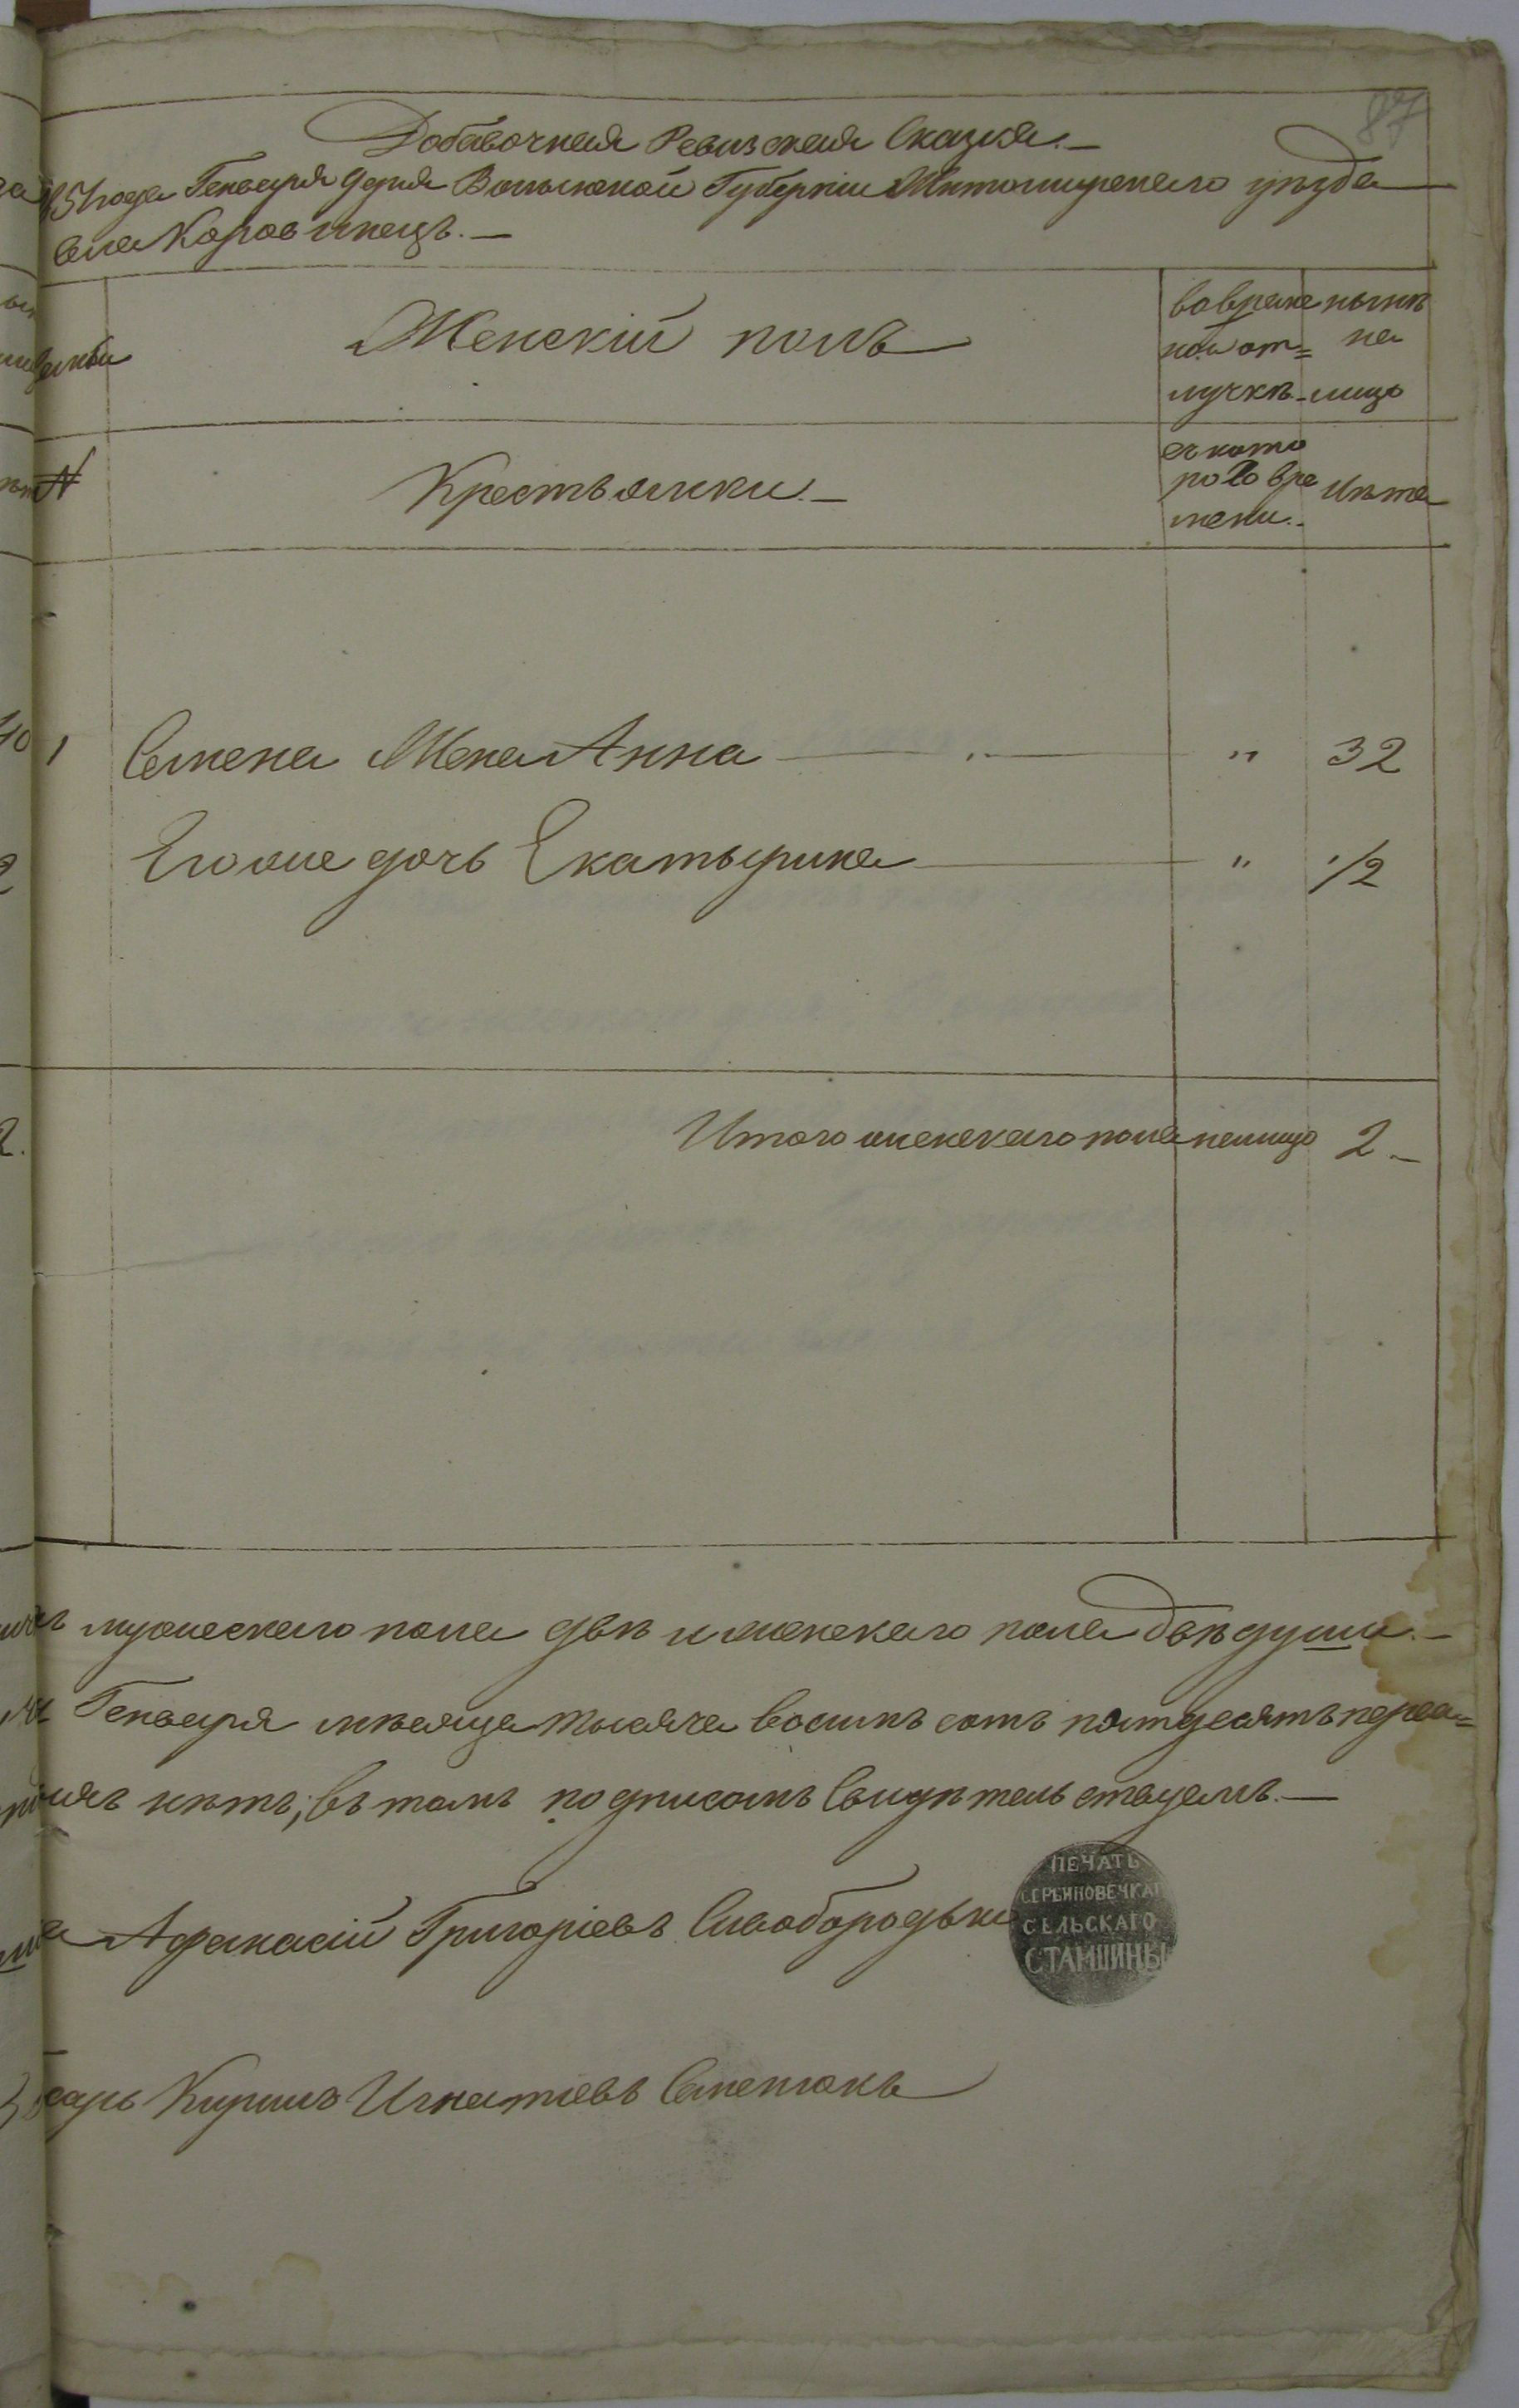 87
Добавочная Ревизская Сказка.–
1851 года Генваря 9 дня Волынской Губернiи Житомирскаго уѣзда
Села Коровинецъ.–
Семьи
Женскiй полъ
во време
нной от=
лучкѣ
нынѣ
на
лицо
№
Крестьянки.–
съ кото
раго вре
мени.
Лѣта
1 Семена Жена Анна " 32
Его же дочь Екатырина " 1/2
Итого женскаго пола налицо 2.–
мужескаго пола двѣ и женскаго пола двѣ души.–
Генваря мѣсяца тысяча восимъ сотъ пятдесятъ перва=
нѣтъ; въ томъ подписомъ Свидѣтельствуемъ.–
Афанасiй Григорiевъ Сивобородько
ПЕЧАТЬ
СЕРБИНОВЕЧКАГ
СЕЛЬСКАГО
СТАМШИНЫ
Писарь Кирилъ Игнатiевъ Семенюкъ